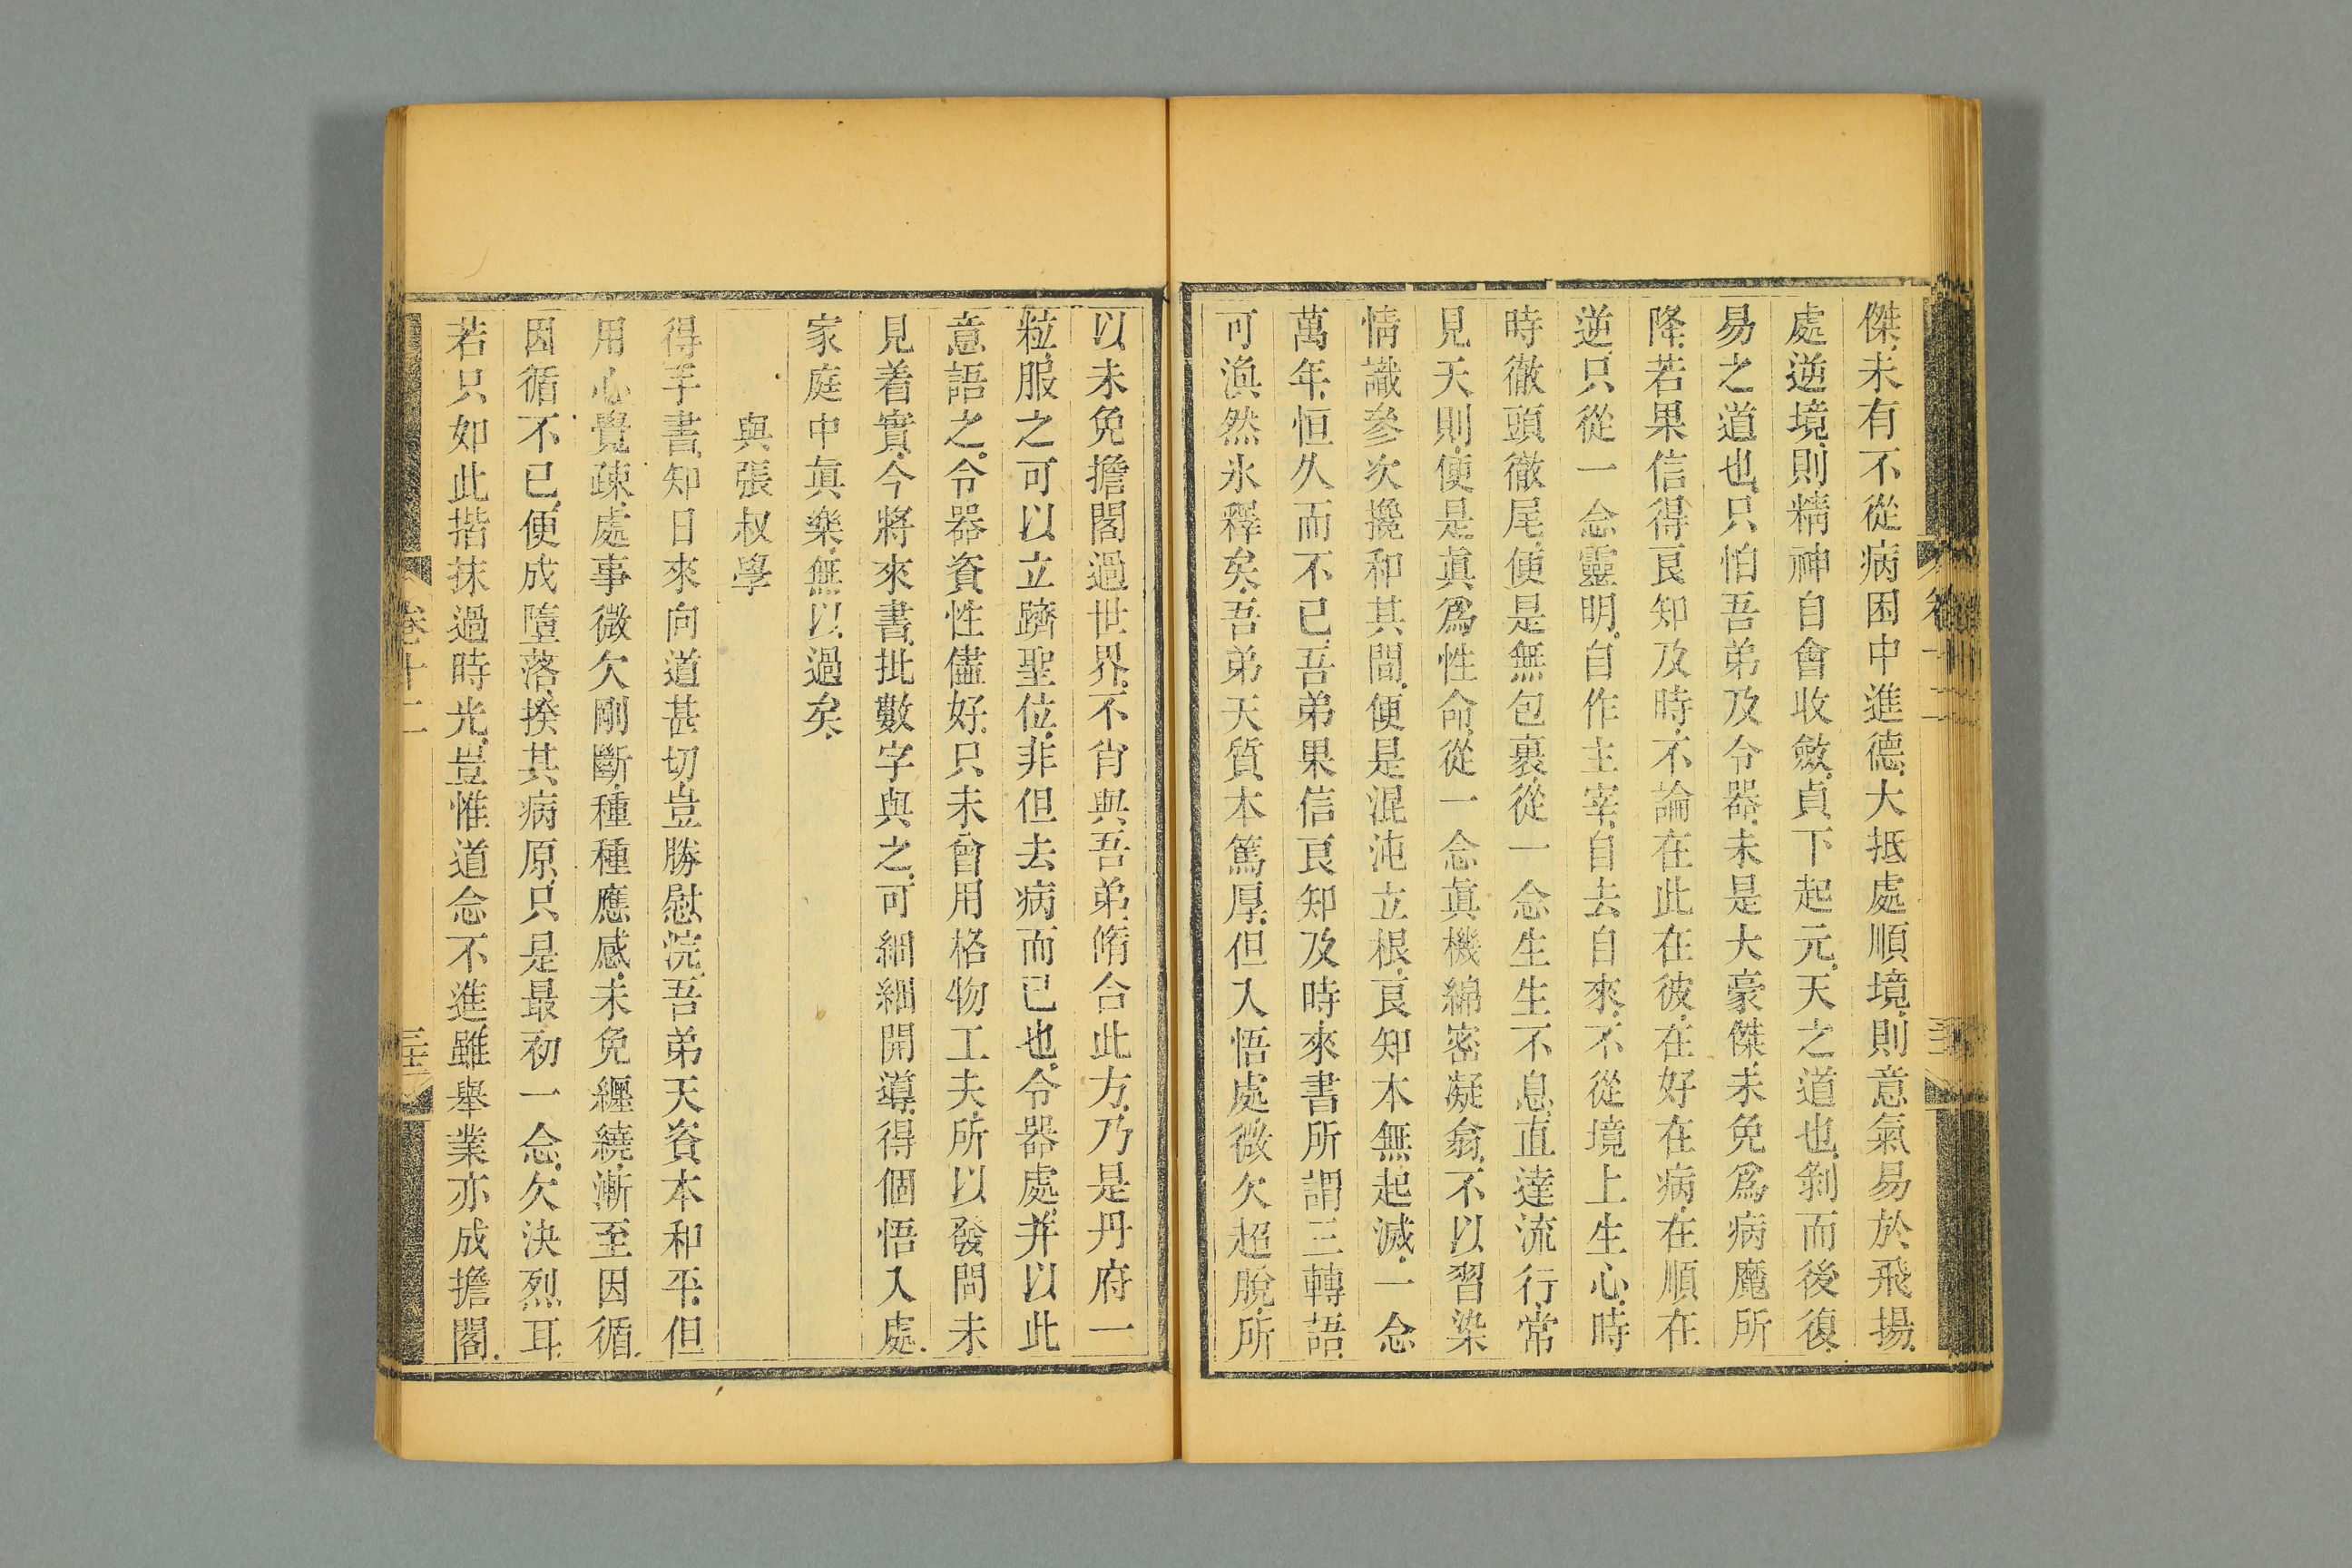 傑未有不從病困中進德大抵處順境則意氣易於飛揚
處逆境則精神自會收斂貞下起元天之道也剝而後復
易之道也只怕吾弟及令器未是大豪傑未免爲病魔所
降若果信得良知及時不論在此在彼在好在病在順在
逆只從一念靈明自作主宰自去自來不從境上生心時
時徹頭徹尾便是無包裹從一念生生不息直達流行常
見天則便是眞爲性命從一念眞機綿密凝翕不以習染
情識參次攙和其間便是混沌立根良知本無起滅一念
萬年恒久而不已吾弟果信良知及時來書所謂三轉語
可渙然氷釋矣吾弟天質本篤厚但入悟處微欠超脫所
以未免擔閣過世界不肖與吾弟脩合此方乃是丹府一
粒服之可以立躋聖位非但去病而已也令器處并以此
意語之令器資性儘好只未曾用格物工夫所以發問未
見着實今將來書批數字與之可細細開導得個悟入處
家庭中眞樂無以過矣
與張叔學
得手書知日來向道甚切豈勝慰浣吾弟天資本和平但
用心覺疎處事微欠剛斷種種應感未免纒繞漸至因循
因循不已便成墮落揆其病原只是最初一念欠決烈耳
若只如此揩抹過時光豈惟道念不進雖舉業亦成擔閣
卷十二